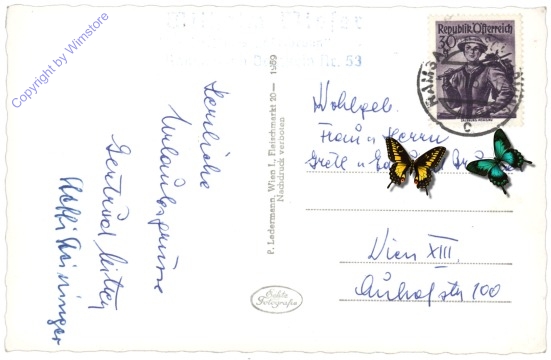 Copyright by Wimstore
Nr. 53
Republik Österreich
30
Herzliche
Urlaubsgrüsse
Gertrud
P. Ledermann, Wien I., Fleischmarkt 20 — 1959
Nachdruck verboten
Echte
Fotografie
Wohlgeb.
Frau u Herrn
Grete u
Wien XIII.
Auhofstr 100